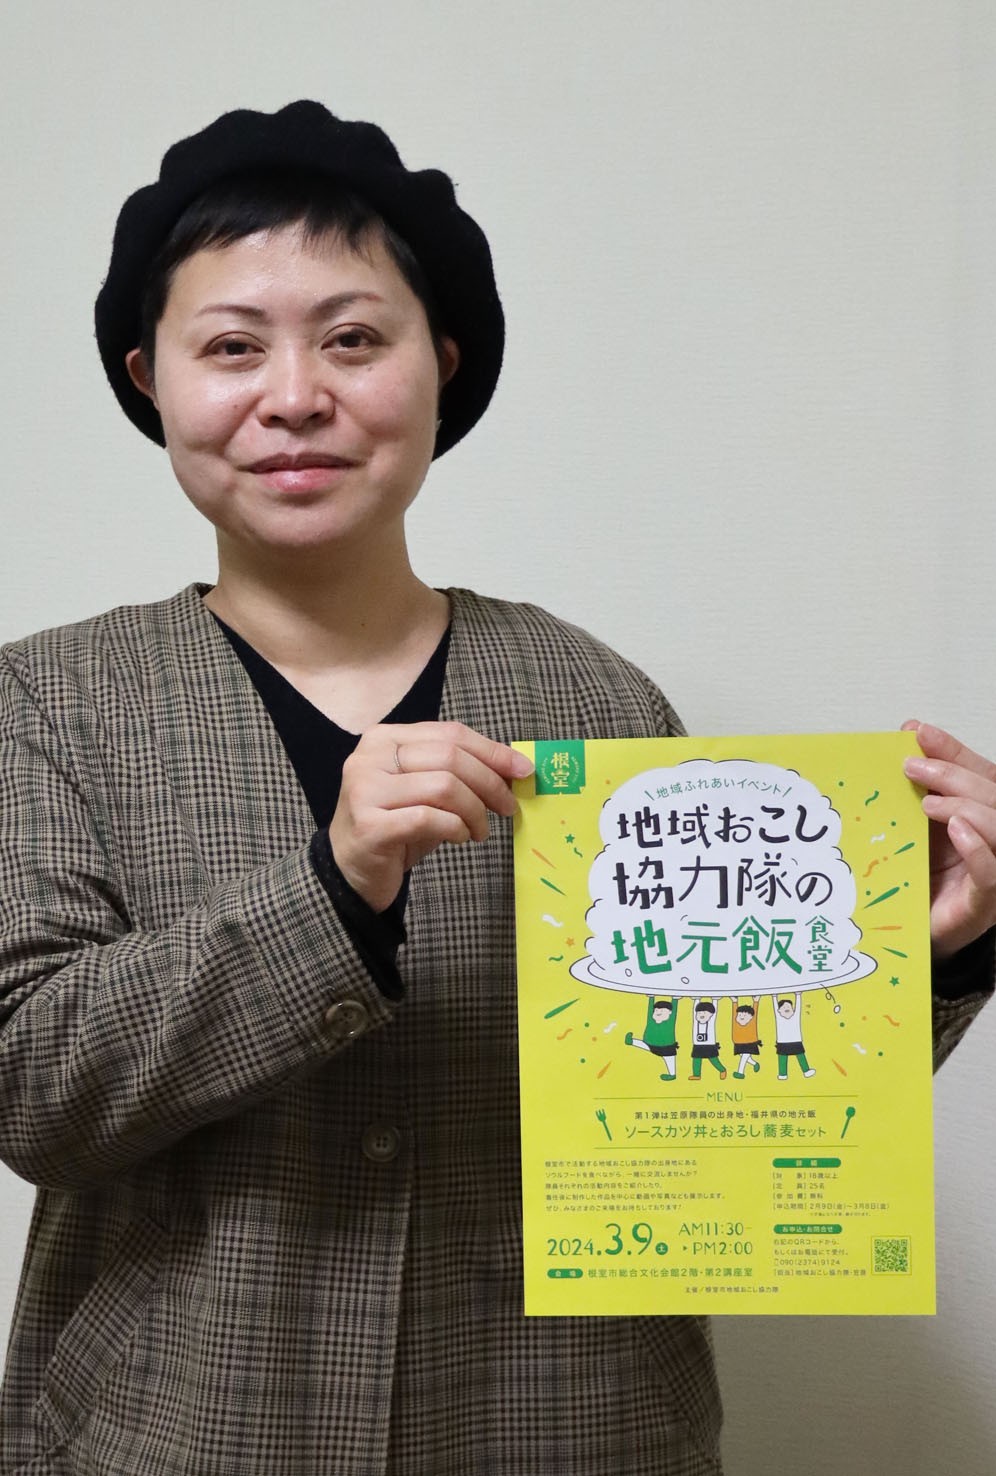 根室
地域ふれあいイベント
地域おこし
協力隊の
地元飯食堂
MENU
第1弾は笠原隊員の出身地・福井県の地元飯
ソースカツ丼とおろし蕎麦セット
根室市で活動する地域おこし協力隊の出身地にある
ソウルフードを食べながら、一緒に交流しませんか?
隊員それぞれの活動内容をご紹介したり、
着任後に制作した作品を中心に動画や写真なども展示します。
ぜひ、みなさまのご来場をお待ちしております!
2024.3.9土 AM11:30-
PM2:00
会場 根室市総合文化会館2階・第2講座室
詳細
[対 象] 18歳以上
[定 員] 25名
[参加費] 無料
[申込期間] 2月9日(金)~3月8日(金)
お申込・お問合せ
右記のQRコードから、
もしくはお電話にて受付。
090(2374)9124
[担当] 地域おこし協力隊・笠原
主催/根室市地域おこし協力隊